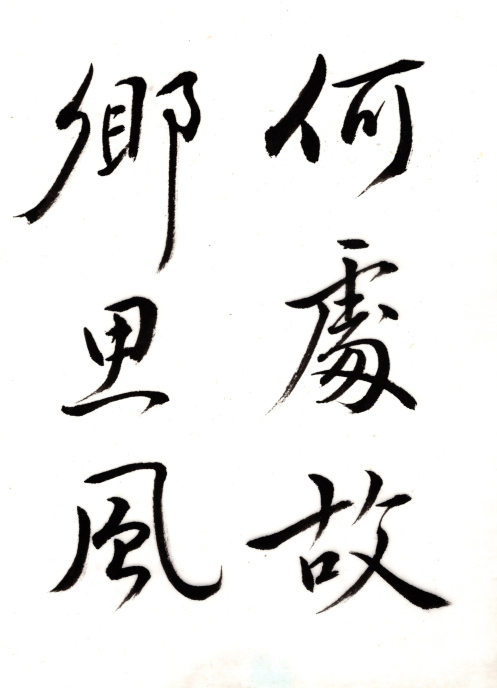 何處故
鄉思風